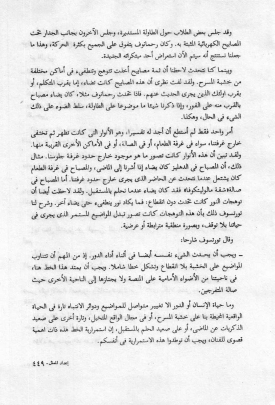 وقد جلس بعض الطلاب حول الطاولة المستديرة، وجلس الآخرون بجانب الجدار تحت
المصابيح الكهربائية المثبتة به. وكان رحمانوف يتجول على الجميع بكثرة الحركة، وهذا ما
جعلنا نستنتج أنه سيتم الآن استعراض أحد مبتكراته الجديدة.
وبينما كنا نتحدث لاحظنا أن ثمة مصابيح أخذت تتوهج وتنطفىء في أماكن مختلفة
من خشبة المسرح. ولقد لفت نظري أن هذه المصابيح كانت تضاء إما بقرب المتكلم، أو
بقرب أولئك الذين يجري الحديث عنهم. فإذا تحدث رحمانوف مثلا، كان يضاء مصباح
بالقرب منه على الفور، وإذا ذكرنا شيئا ما موضوعا على الطاولة، سلط الضوء على ذلك
الشيء في الحال، وهكذا.
أمر واحد فقط لم أستطع أن أجد له تفسيرا، وهو الأنوار التي كانت تظهر ثم تختفي
خارج غرفتنا، سواء في غرفة الطعام، أو في الصالة، أو في الأماكن الأخرى القريبة منها.
ولقد تبين أن هذه الأنوار كانت تصور ما هو موجود خارج حدود غرفة جلوسنا. مثال
ذلك، أن المصباح في الدهليز كان يضاء إذا أشرنا إلى الماضي، والمصباح في غرفة الطعام
كان يشتعل عندما نتحدث عن الحاضر الذي يجري خارج حدود غرفتنا. أما المصباح في
صالة شقة مالوليتكوفا فقد كان يضاء عندما نحلم بالمستقبل. ولقد لاحظت أيضا أن
توهجات النور كانت تحدث دون انقطاع، فما يكاد نور ينطفىء، حتى يضاء آخر. وشرح لنا
تورتسوف ذلك بأن هذه التوهجات كانت تصور تبدل المواضيع المستمر الذي يجري في
حياتنا بلا توقف، وبصورة منطقية مترابطة أو عرضية.
وقال تورتسوف شارحا:
- ويجب أن يحدث الشيء نفسه أيضا في أثناء أداء الدور. إذ من المهم أن تتناوب
المواضيع على الخشبة بلا انقطاع وتشكل خطا شاملا. ويجب أن يمتد هذا الخط هنا،
في ناحيتنا من الأضواء الأمامية على المنصة ولا يجتازها إلى الناحية الأخرى حيث
صالة المتفرجين.
وما حياة الإنسان أو الدور الا تغيير متواصل للمواضيع ودوائر الانتباه تارة في الحياة
الواقعية المحيطة بنا على خشبة المسرح، أو في مجال الواقع المتخيل، وتارة أخرى على صعيد
الذكريات عن الماضي، أو على صعيد الحلم بالمستقبل. إن استمرارية الخط هذه ذات أهمية
قصوى للفنان، ويجب أن توطدوا هذه الاستمرارية في أنفسكم.
إعداد الممثل - ٤٤٩